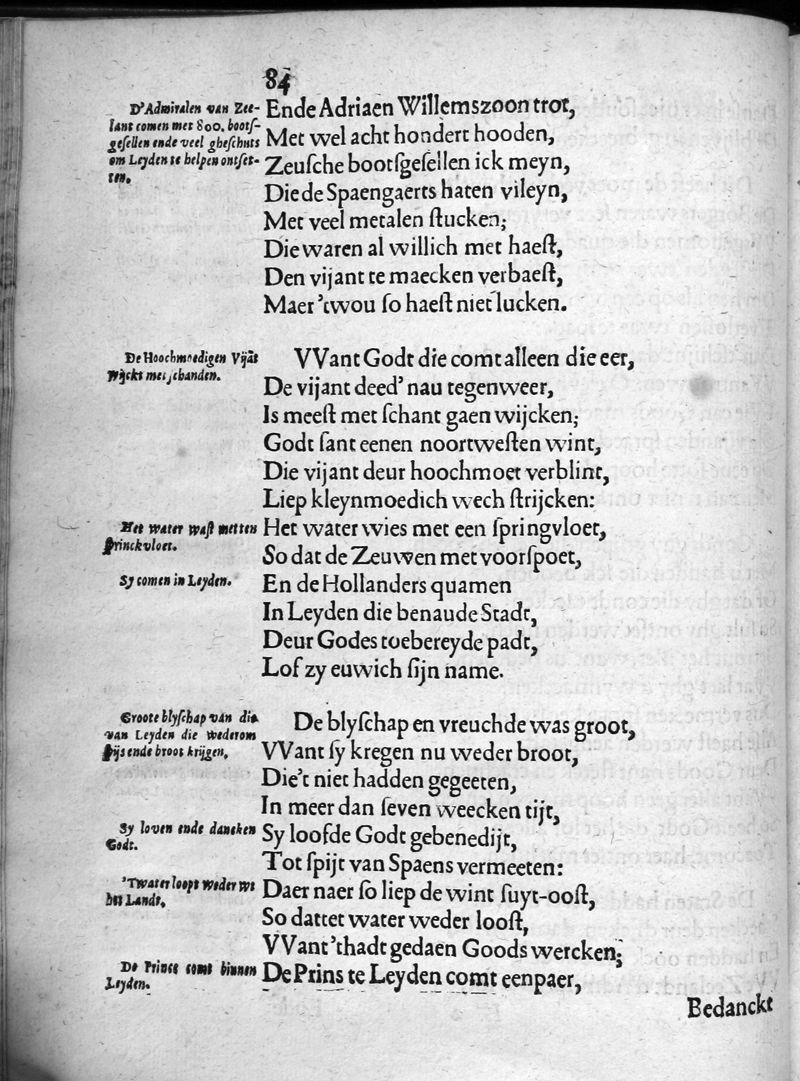 84
D'Admiralen van Zee-
lant comen met 800. bootſ-
geſellen ende veel gheſchuts
om Leyden te helpen ontſet-
ten.
Ende Adriaen Willemszoon trot,
Met wel acht hondert hooden,
Zeuſche bootſgeſellen ick meyn,
Die de Spaengaerts haten vileyn,
Met veel metalen ſtucken;
Die waren al willich met haeſt,
Den vijant te maecken verbaeſt,
Maer 'twou ſo haeſt niet lucken.
De Hoochmoedigen Vijāt
Wijckt met ſchanden.
VVant Godt die comt alleen die eer,
De vijant deed' nau tegenweer,
Is meeſt met ſchant gaen wijcken;
Godt ſant eenen noortweſten wint,
Die vijant deur hoochmoet verblint,
Liep kleynmoedich wech ſtrijcken:
Het water waſt met ten
ſprinckvloet.
Het water wies met een ſpringvloet,
So dat de Zeuwen met voorſpoet,
Sy comen in Leyden.
En de Hollanders quamen
In Leyden die benaude Stadt,
Deur Godes toebereyde padt,
Lof zy euwich ſijn name.
Groote blyſchap van die
van Leyden die wederom
ſpijs ende broot krijgen,
De blyſchap en vreuchde was groot,
VVant ſy kregen nu weder broot,
Die't niet hadden gegeeten,
In meer dan ſeven weecken tijt,
Sy loven ende dancken
Godt.
Sy loofde Godt gebenedijt,
Tot ſpijt van Spaens vermeeten:
'Twater loopt weder wt
het Landt,
Daer naer ſo liep de wint ſuyt-ooſt,
So dattet water weder looſt,
VVant 'thadt gedaen Goods wercken;
De Prince comt binnen
Leyden.
De Prins te Leyden comt eenpaer,
Bedanckt